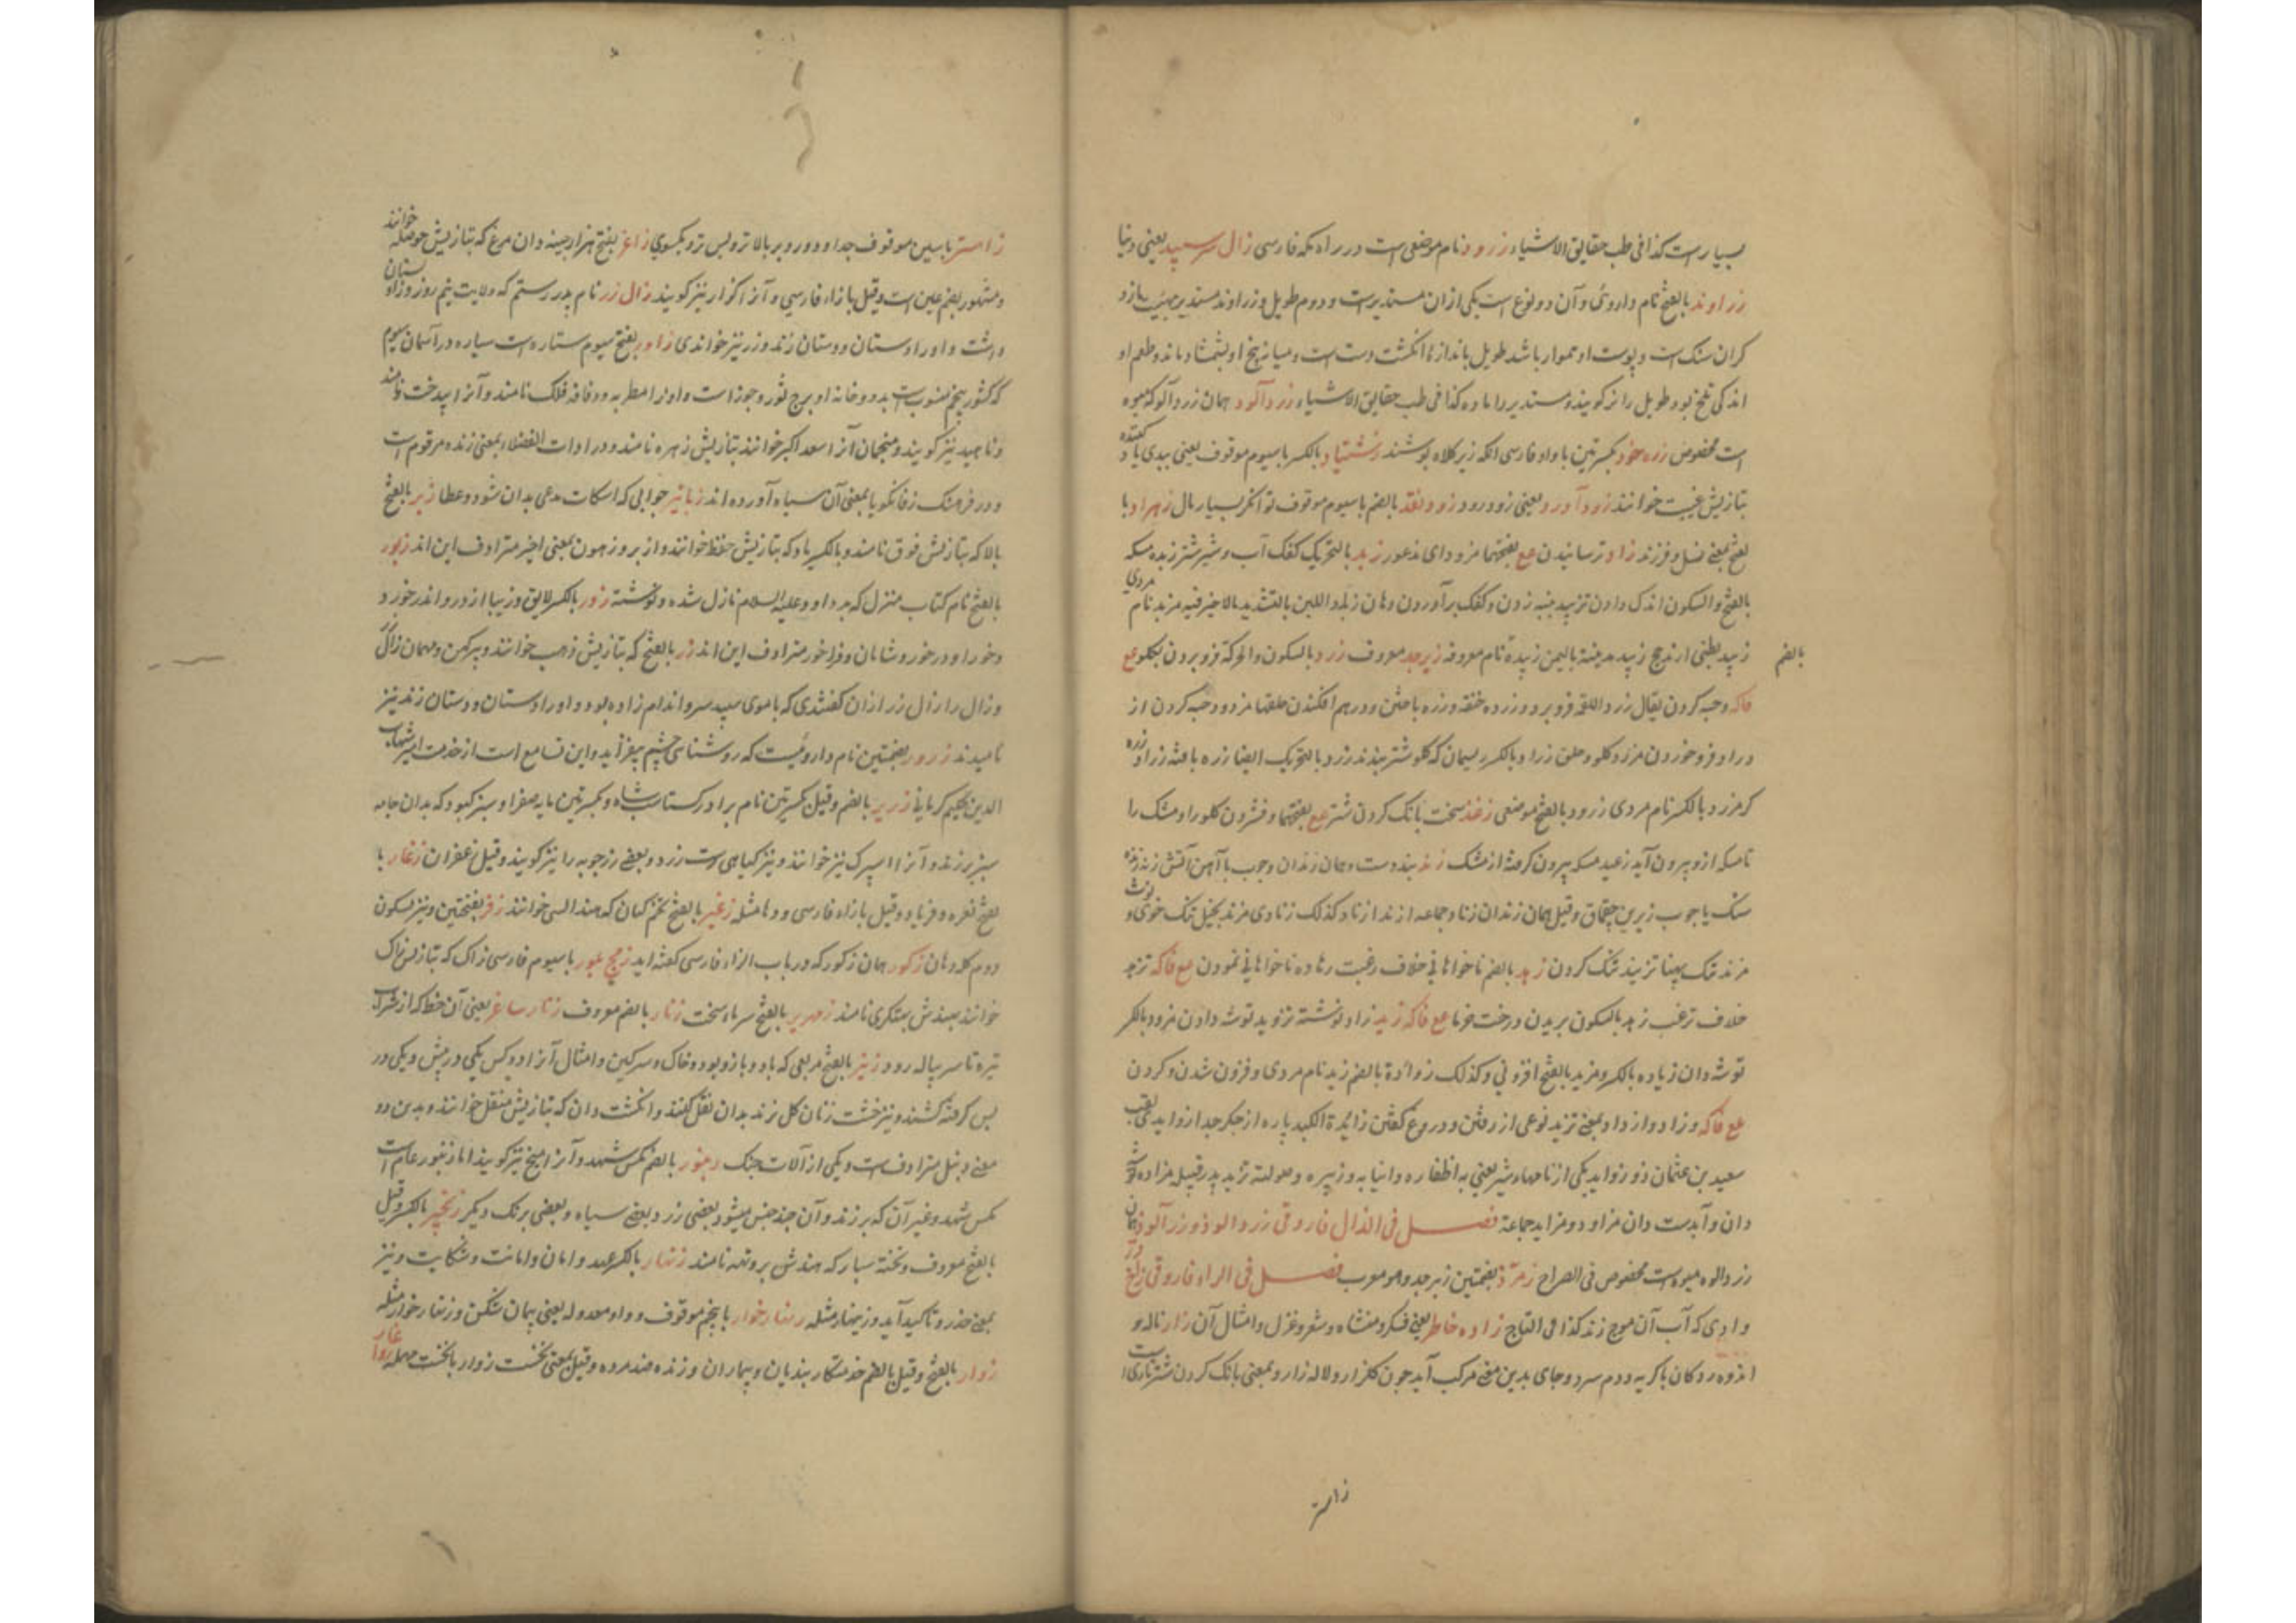 بسیار است کذا فی طب حقایق الاشیاء زرود نام موضعی است در راه مکه فارسی زال سر سپید یعنی دنیا
زراوند بالفتح نام داروئی و آن دو نوع است یکی ازان مستدیر است و دوم طویل و زراوند مستدیر
کران سنک است و پوست او هموار باشد طویل باندازه انکشت دست است و میانه بیخ او بشمشاد ماند و طعم او
اندکی تلخ بود طویل را نر کویند و مستدیر را ماده کذا فی طب حقایق الاشیاء زردآلود همان زردآلو که میوه
است مخصوص زره خود بکسرتین با واو فارسی انکه زیر کلاه پوشند بالکسر با سیوم موقوف یعنی بدی یاد کننده
بتازیش غیبت خوانند زود آورد یعنی زود رود زود نقد بالضم با سیوم موقوف توانکر بسیار مال زهراد با
لفتح بمعنی نسل و فرزند زاد ترسانیدن مع بفتحها مزود ای مذعور زبد بالتحریک کفک آب و شیر شتر زبده مسکه
بالفتح والسکون اندک دادن تزبید پنبه زدن و کفک برآوردن دهان مزبد نام مردی
زبید بطنی از مذحج زبید مدینة بالیمن زبیده نام معروفه زبرجد معروف زرد بالسکون والحرکة فرو بردن بکلو مع
بالضم
فاکه و خبه کردن یقال زرد اللقمة فرو برد و زرده خنقه و زره بافتن و درهم افکندن حلقها مزرود خبه کردن از
در او فرو خوردن مزرد کلو و حلق زراد بالکسر ریسمان که کلو شتر بندند زرد بالتحریک ایضا زره بافته زراد زره
کر مزرد بالکسر نام مردی زرود بالفتح موضعی زغد سخت بانک کردن شتر مع بفتحها و فشردن کلو را و مشک را
تا مسکه ازو بیرون آید زغید مسکه بیرون کرفته از مشک زند بند دست و همان زندان و چوب با آهن آتش زنه زنده
سنک با چوب زیرین چقماق و قیل همان زندان زناد جماعه ازند ازناد کذلک زنادی مزند بخیل تنک خوی و ثوب
مزند تنک پهنا تزنید تنک کردن زهد بالضم ناخواهانی خلاف رغبت زهاده ناخواهانی نمودن مع فاکه تزهد
خلاف ترغب زهد بالسکون بریدن درخت خرما مع فاکه زید زاد توشته تزوید توشه دادن مزود بالکسر
توشه دان زیاده بالکسر و مزید بالفتح افزونی و کذلک زوائدة بالضم زید نام مردی و فزون شدن و کردن
مع فاکه و زاد و ازداد بمعنی تزید نوعی از رفتن و دروغ کفتن زائدة الکبد پاره از جکر جدا زواید لقب
سعید بن عثمان ذو زواید یکی از نامهاء شیر یعنی به اظفاره و انیابه و زئیره و صولته تزید پدر قبیله مزاده توشه
دان و آبدست دان مزاود و مزاید جماعة فصل فی الذال فاروقی زردالوذ و زرآلوذ همان
زردالوه میوه است مخصوص فی الصراح زمرّذ بضمتین زبرجد وهو معرب فصل فی الراء فاروقی زاخر
وادی که آب آن موج زند کذا فی التاج زاده خاطر یعنی فکر و منشاه و شعر و غزل و امثال آن زار ناله و
اندوه ردکان با کریه و دم سرد و جای بدین معنی مرکب آید چون کلزار و لاله زار و بمعنی بانک کردن شتر تازی است
زاستر
زاستر با سین موقوف جدا و دور و بر بالاتر و پس تر و یکسوی زاغر بفتح هزار جینه دان مرغ که بتازیش حوصله خوانند
و مشهور بضم غین است و قیل با زاء فارسی و آنرا کزار نیز کویند زال زر نام پدر رستم که ولایت نیم روز و زاولستان
داشت و او را دستان و دستان زند و زر نیز خواندی زاور بفتح سیوم ستاره است سیاره در آسمان سیوم
که کشور پنجم منسوب است بدو و خانه او برج ثور و جوزا است و او را مطربه و رقاصه فلک نامند و آنرا بیدخت نامند
و ناهید نیز کویند و منجمان آنرا سعد اکبر خوانند بتازیش زهره نامند و در ادات الفضلاء بمعنی زنده مرقوم است
و در فرهنک زفانکویا بمعنی آن سیاه آورده اند جوابی که اسکات مدعی بدان شود و عطا زبر بالفتح
بالا که بتازیش فوق نامند و بالکسر یاد که بتازیش حفظ خوانند و از بر و زهون بمعنی اخیر مترادف این اند زبور
بالفتح نام کتاب منزل که بر داود علیه السلام نازل شده و نوشته زور بالکسر لایق و زیبا ازدر و اندر خورد
و خور او درخور و شایان و فراخور مترادف این اند زر بالفتح که بتازیش ذهب خوانند و پیر کهن و همان زالک
و زال را زال زر ازان کفتندی که با موی سپید سر و اندام زاده بود و او را دستان و دستان زند نیز
نامیدند زرور بضمتین نام داروئیست که روشنائی چشم بیفزاید و این تسامع است از خدمت امیر شهاب
الدین حکیم کرمانی زریر بالضم و قیل بکسرتین نام برادر کشتاسب شاه و بکسرتین مایه صفرا و سبز کبود که بدان جامه
سبز برزند و آنرا اسپرک نیز خوانند و نیز کیاهی است زرد و بعضی زرچوبه را نیز کویند و قیل زعفران زغار با
لفتح نعره و فریاد و قیل با زاء فارسی و ژغار مثله زغیر بالفتح تخم کتان که هندالسی خوانند زفر بفتحتین و نیز بسکون
دوم کله دهان زکور همان ژکور که در باب الزاء فارسی کفته آید زمج بلور با سیوم فارسی زاک که بتازیش زاک
خوانند هندش پهتکری نامند زمهریر بالفتح سرماء سخت زنار بالضم معروف زنار ساغر یعنی آن خط که از شراب
تیره تا سر پیاله رود زنبر بالفتح مربعی که با دو بازو بود و خاک و سرکین و امثال آنرا دو کس یکی در پیش و یکی در
پس کرفته کشند و نیز خشت زنان کل نزند بدان نقل کنند و انکشت دان که بتازیش منقل خوانند و بدین دو
معنی زنبل مترادف است و یکی از آلات جنک زنبور بالضم مکس شهد و آنرا منج نیز کویند اما زنبور عام است
مکس شهد و غیر آن که پرزند و آن چند جنس میشود بعضی زرد بعضی سیاه و بعضی برنک دیکر زنجیر بالکسر و قیل
بالفتح معروف و تخته سبارکه هندش بروتهه نامند زنهار بالکسر عهد و امان و امانت و شکایت و نیز
بمعنی حذر و تاکید آید و زینهار مثله زنهار خوار با پنجم موقوف و واو معدوله یعنی پیمان شکن و زنهار خوار مثله
زوار بالفتح و قیل بالضم خدمتکار بندیان و بیماران و زنده ضد مرده و قیل بمعنی نخست زوار بانخست مهمله زواغار